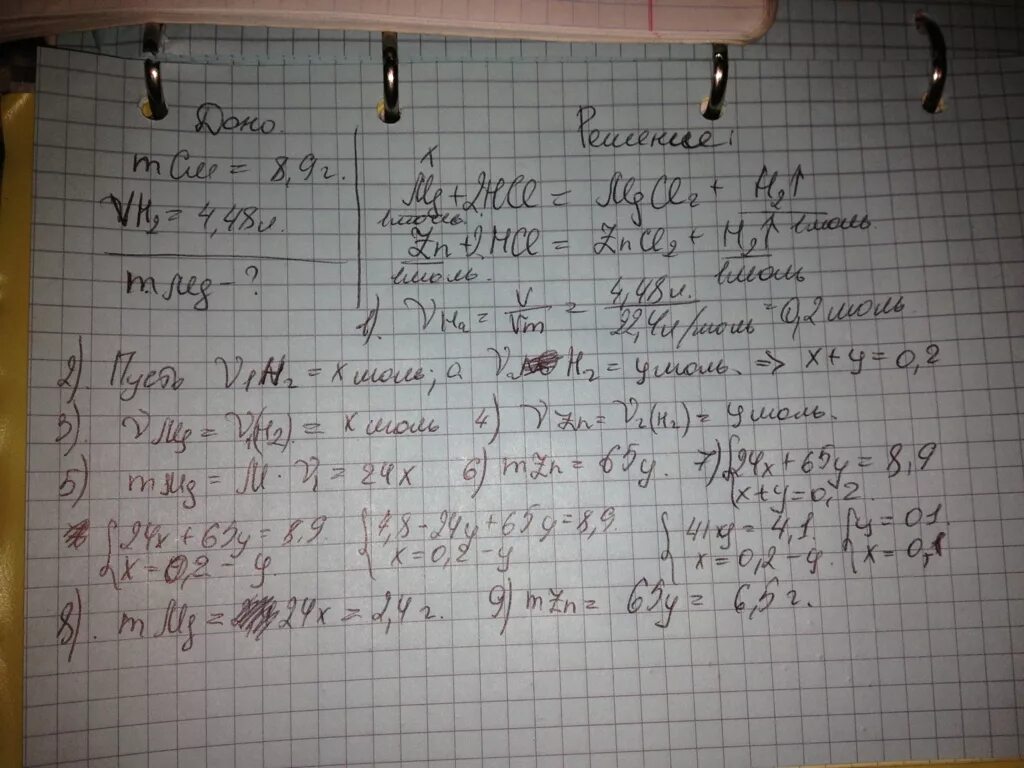 Дано.
m см = 8,9 г.
VH₂ = 4,48 л.
m Mg - ?
Решение:
x
Mg + 2HCl = MgCl₂ + H₂↑
1 моль 1 моль
Zn + 2HCl = ZnCl₂ + H₂↑
1 моль. 1 моль
1) νH₂ = V/Vm = 4,48 л./22,4 л/моль = 0,2 моль.
2). Пусть ν₁H₂ = x моль, а ν₂ H₂ = y моль. => x + y = 0,2
3). ν Mg = ν₁(H₂) = x моль 4) ν Zn = ν₂(H₂) = y моль.
5) m Mg = M · ν₁ = 24x 6) m Zn = 65y. 7) {24x + 65y = 8,9
{x + y = 0,2.
{24x + 65y = 8,9. {4,8 - 24y + 65y = 8,9. {41y = 4,1 {y = 0,1.
{x = 0,2 - y. {x = 0,2 - y {x = 0,2 - y. {x = 0,1
8). m Mg = 24x = 2,4 г. 9) m Zn = 65y = 6,5 г.